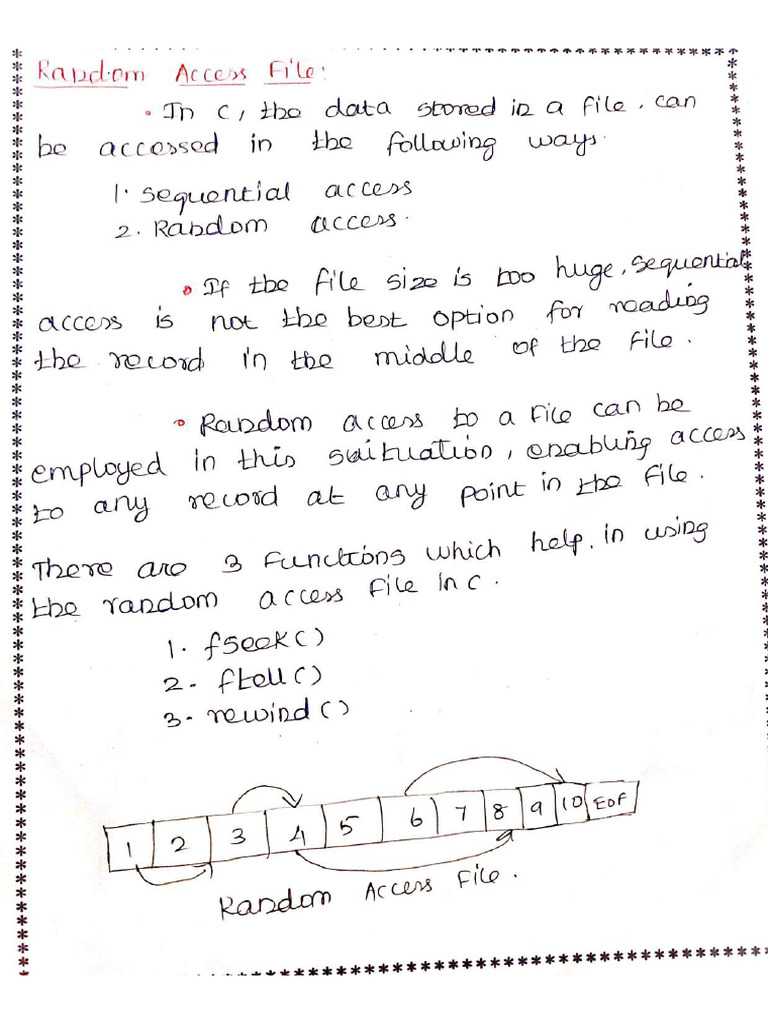 Random Access File:
• In C, the data stored in a file, can
be accessed in the following ways.
1. sequential access
2. Random access.
• If the file size is too huge, sequential
access is not the best option for reading
the record in the middle of the file.
• Random access to a file can be
employed in this suituation, enabling access
to any record at any point in the file.
There are 3 functions which help in using
the random access file in C.
1. fseek()
2. ftell()
3. rewind()
1 2 3 4 5 6 7 8 9 10 EOF
Random Access File.